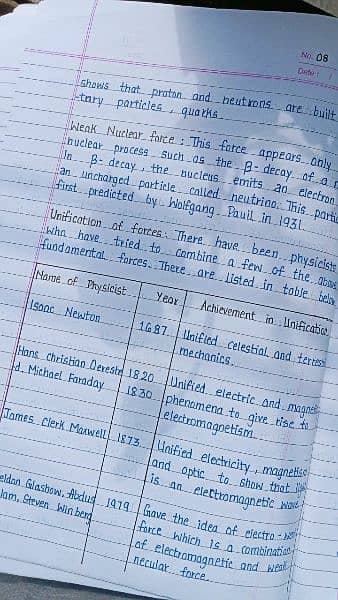 No. 08
Date: / /
shows that proton and neutrons are built
-tary particles, quarks.
Weak Nuclear force: This force appears only
nuclear process such as the β-decay of a n
In β-decay, the nucleus emits an electron
an uncharged particle called neutrino. This parti
first predicted by Wolfgang Pauli in 1931.
Unification of forces: There have been physicists
who have tried to combine a few of the above
fundamental forces. There are listed in table below
Name of Physicist Year Achievement in Unification
Isaac Newton 1687 Unified celestial and terrest
mechanics.
Hans Christian Oerestn 1820 Unified electric and magnet
d. Michael Faraday 1830 phenomena to give rise to
electromagnetism.
James Clerk Maxwell 1873 Unified electricity, magnetism
and optic to show that
is an electromagnetic wave
eldon Glashow, Abdus 1979 Gave the idea of electro-
lam, Steven Winberg force which is a combination
of electromagnetic and weak
necular force.